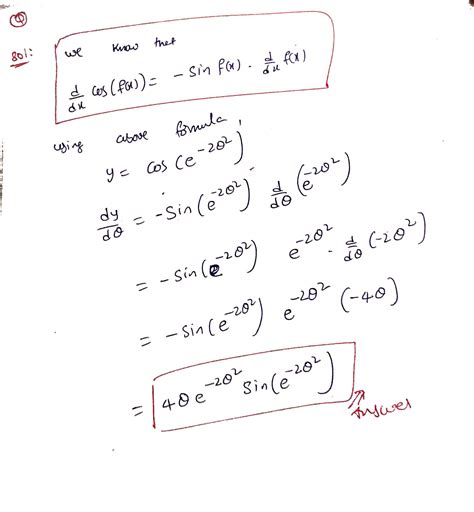 ④
Sol:
we know that
d/dx cos(f(x)) = - Sin f(x) . d/dx f(x)
using above formula,
y = cos(e^{-2θ^2})
dy/dθ = -Sin(e^{-2θ^2}) d/dθ (e^{-2θ^2})
= -Sin(e^{-2θ^2}) e^{-2θ^2} . d/dθ (-2θ^2)
= -Sin(e^{-2θ^2}) e^{-2θ^2} (-4θ)
= 4θ e^{-2θ^2} Sin(e^{-2θ^2})
Answer